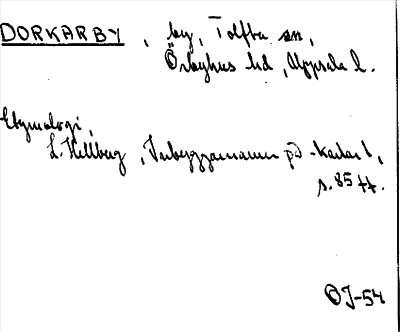 DORKARBY, by, Tolfta sn,
Örbyhus hd, Uppsala l.
Etymologi,
L. Hellberg, Inbyggarnamn på -karlar 1,
s. 85 ff.
OJ-54